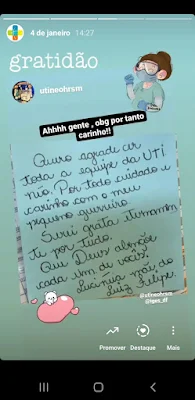 4 de janeiro 14:27
gratidão
utineohrsm
Ahhhh gente , obg por tanto
carinho!!
Quero agradecer
toda a equipe da UTI
nio. Por todo cuidado e
carinho com o meu
pequeno guerreiro.
Serei grata eternamen
te por tudo.
Que Deus abençoe
cada um de vocês!
mãe do
Luiz Felipe.
@utineohrsm
@iges_df
Promover Destaque Mais